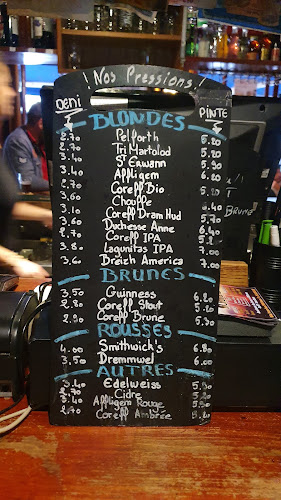 ! Nos Pressions !
DEMI PINTE
BLONDES
2.70 Pelforth 5.20
2.70 Tri Martolod 5.20
3.40 St Erwann
3.40 Affligem
2.70 Coreff Bio
3.60 Chouffe
3.10 Coreff Dram Hud 5.70
3.60 Duchesse Anne
2.70 Coreff IPA
3.80 Lagunitas IPA 7.00
3.60 Breizh America 7.00
BRUNES
3.50 Guinness 6.20
2.80 Coreff Stout
2.90 Coreff Brune
ROUSSES
4.00 Smithwick's 6.80
3.50 Dremmwel 6.00
AUTRES
3.40 Edelweiss
Cidre
3.40 Affligem Rouge
2.70 Coreff Ambrée